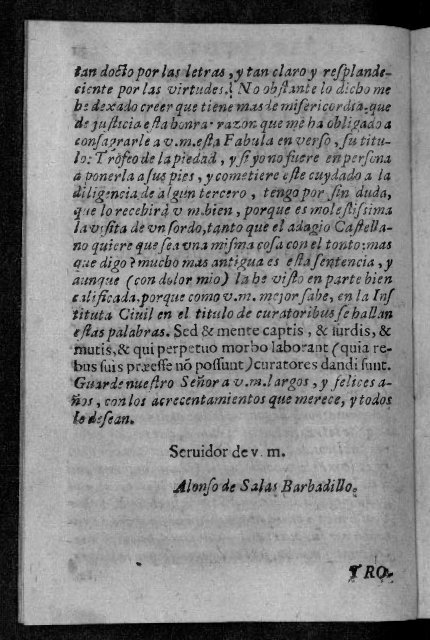 tan docto por las letras, y tan claro y resplande-
ciente por las virtudes. No obstante lo dicho me
he dexado creer que tiene mas de misericordia que
de justicia esta honra: razon que me ha obligado a
consagrarle a v.m. esta Fabula en verso, su titu-
lo: Trofeo de la piedad, y si yo no fuere en persona
a ponerla a sus pies, y cometiere este cuydado a la
diligencia de algun tercero, tengo por sin duda,
que lo recebirà v m. bien, porque es molestissima
la visita de vn sordo, tanto que el adagio Castella-
no quiere que sea vna misma cosa con el tonto: mas
que digo? mucho mas antigua es esta sentencia, y
aunque (con dolor mio) la he visto en parte bien
calificada. porque como v.m. mejor sabe, en la Ins
tituta Ciuil en el titulo de curatoribus se hallan
estas palabras. Sed & mente captis, & surdis, &
mutis, & qui perpetuo morbo laborant (quia re-
bus suis præesse nō possunt) curatores dandi sunt.
Guarde nuestro Señor a v.m. largos, y felices a-
ños, con los acrecentamientos que merece, y todos
le desean.
Seruidor de v. m.
Alonso de Salas Barbadillo.
TRO-